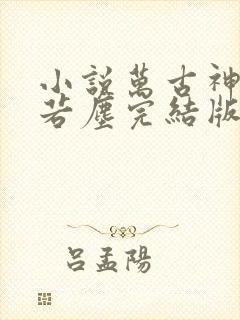 小說萬古神
若塵完結版
呂孟陽